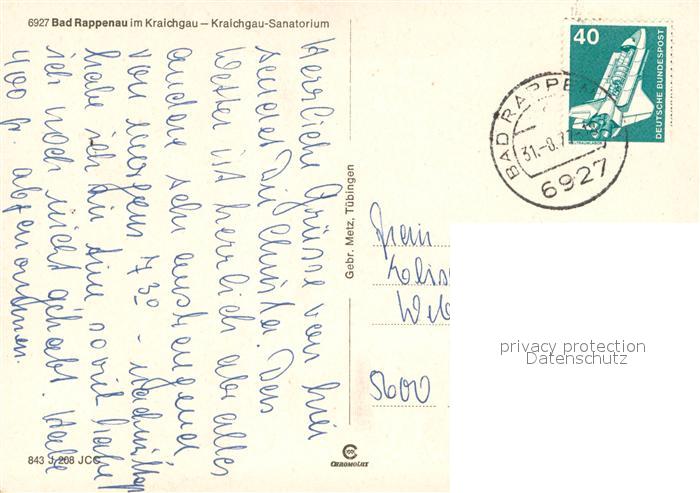 6927 Bad Rappenau im Kraichgau – Kraichgau-Sanatorium
Herrliche Grüsse von hier
sendet Dir Christa. Das
Wetter ist herrlich aber alles
andere sehr anstrengend
von morgens 7 30 -
habe ich hin soviel
ich noch nicht gehabt. Habe
400 gr. abgenommen.
Gebr. Metz, Tübingen
843 J 208 JCC
CHROMOLUX
40
DEUTSCHE BUNDESPOST
WELTRAUMLABOR
BAD RAPPENAU
31.-8.77
6927
Frau
5600
privacy protection
Datenschutz